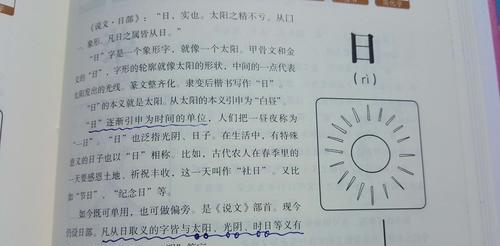 《说文·日部》：“日，实也。太阳之精不亏。从囗
一，象形。凡日之属皆从日。”
“日”字是一个象形字，就像一个太阳。甲骨文和金
文的“日”，字形的轮廓就像太阳的形状，中间的一点代表
太阳发出的光线。篆文整齐化。隶变后楷书写作“日”。
“日”的本义就是太阳。从太阳的本义引申为“白昼”。
“日”逐渐引申为时间的单位，人们把一昼夜称为
“一日”。“日”也泛指光阴、日子。在生活中，有特殊
意义的日子也以“日”相称。比如，古代农人在春季里的
一天要感恩土地、祈祝丰收，这一天叫作“社日”。又比
如“节日”、“纪念日”等。
如今既可单用，也可做偏旁。是《说文》部首。现今
仍设日部。凡从日取义的字皆与太阳、光阴、时日等义有
日
(rì)